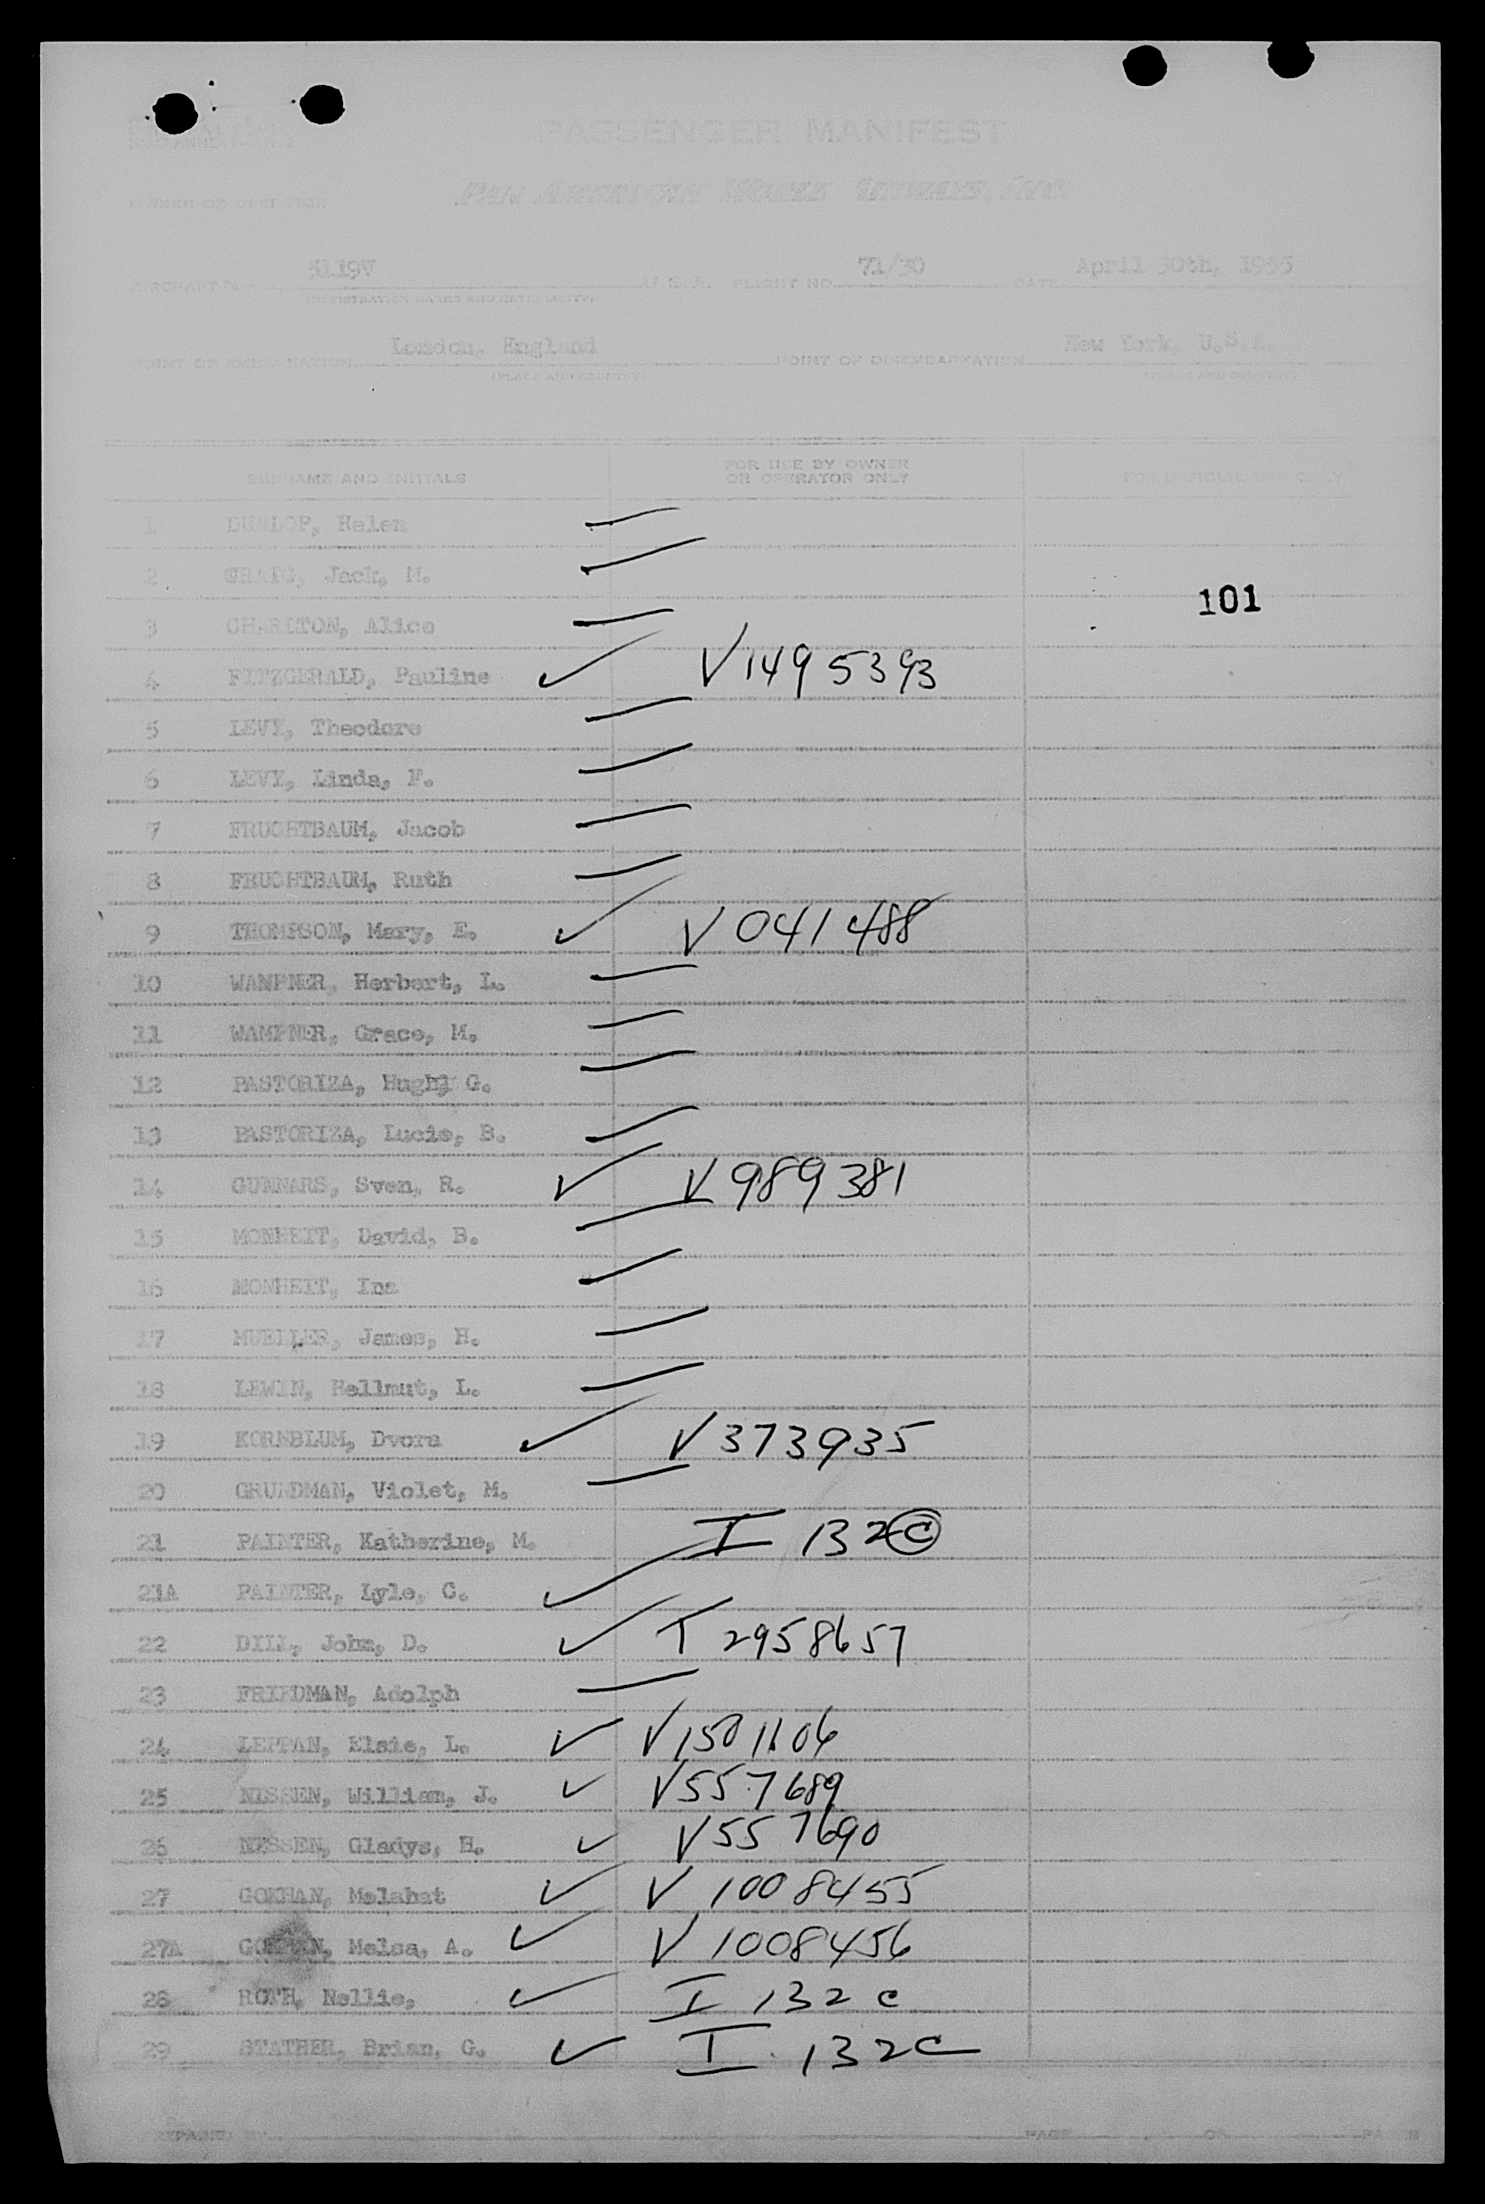 PASSENGER MANIFEST
PAN AMERICAN WORLD AIRWAYS, INC.
OWNER OR OPERATOR
5119V 71/30 April 30th, 1955
AIRCRAFT U.S.A. FLIGHT NO. DATE
(REGISTRATION MARKS AND NATIONALITY)
London, England New York, U.S.A.
POINT OF EMBARKATION POINT OF DISEMBARKATION
(PLACE AND COUNTRY) (PLACE AND COUNTRY)
SURNAME AND INITIALS FOR USE BY OWNER OR OPERATOR ONLY FOR OFFICIAL USE ONLY
1 DUNLOP, Helen
2 CRAIG, Jack, M.
101
3 CHARLTON, Alice
4 FITZGERALD, Pauline ✓ V1495393
5 LEVY, Theodore
6 LEVY, Linda, F.
7 FRUCHTBAUM, Jacob
8 FRUCHTBAUM, Ruth
9 THOMPSON, Mary, E. ✓ V 041488
10 WAMPNER, Herbert, L.
11 WAMPNER, Grace, M.
12 PASTORIZA, Hugh, G.
13 PASTORIZA, Lucie, B.
14 GUNNARS, Sven, R. ✓ V989381
15 MONHEIT, David, B.
16 MONHEIT, Ina
17 MUELLER, James, H.
18 LEWIN, Hellmut, L.
19 KORNBLUM, Dvora ✓ V373935
20 GRUNDMAN, Violet, M.
21 PAINTER, Katherine, M. I 132 C
21A PAINTER, Lyle, C. ✓
22 DILL, John, D. ✓ T 2958657
23 FRIEDMAN, Adolph
24 LEPPAN, Elsie, L. ✓ V1501106
25 NESSEN, William, J. ✓ V557689
26 NESSEN, Gladys, H. ✓ V557690
27 GOKHAN, Melahat ✓ V 1008455
27A GOKHAN, Melsa, A. ✓ V 1008456
28 ROTH, Nellie, ✓ I 132 C
29 STATHER, Brian, G. ✓ I 132C
PREPARED BY PAGE OF PAGES